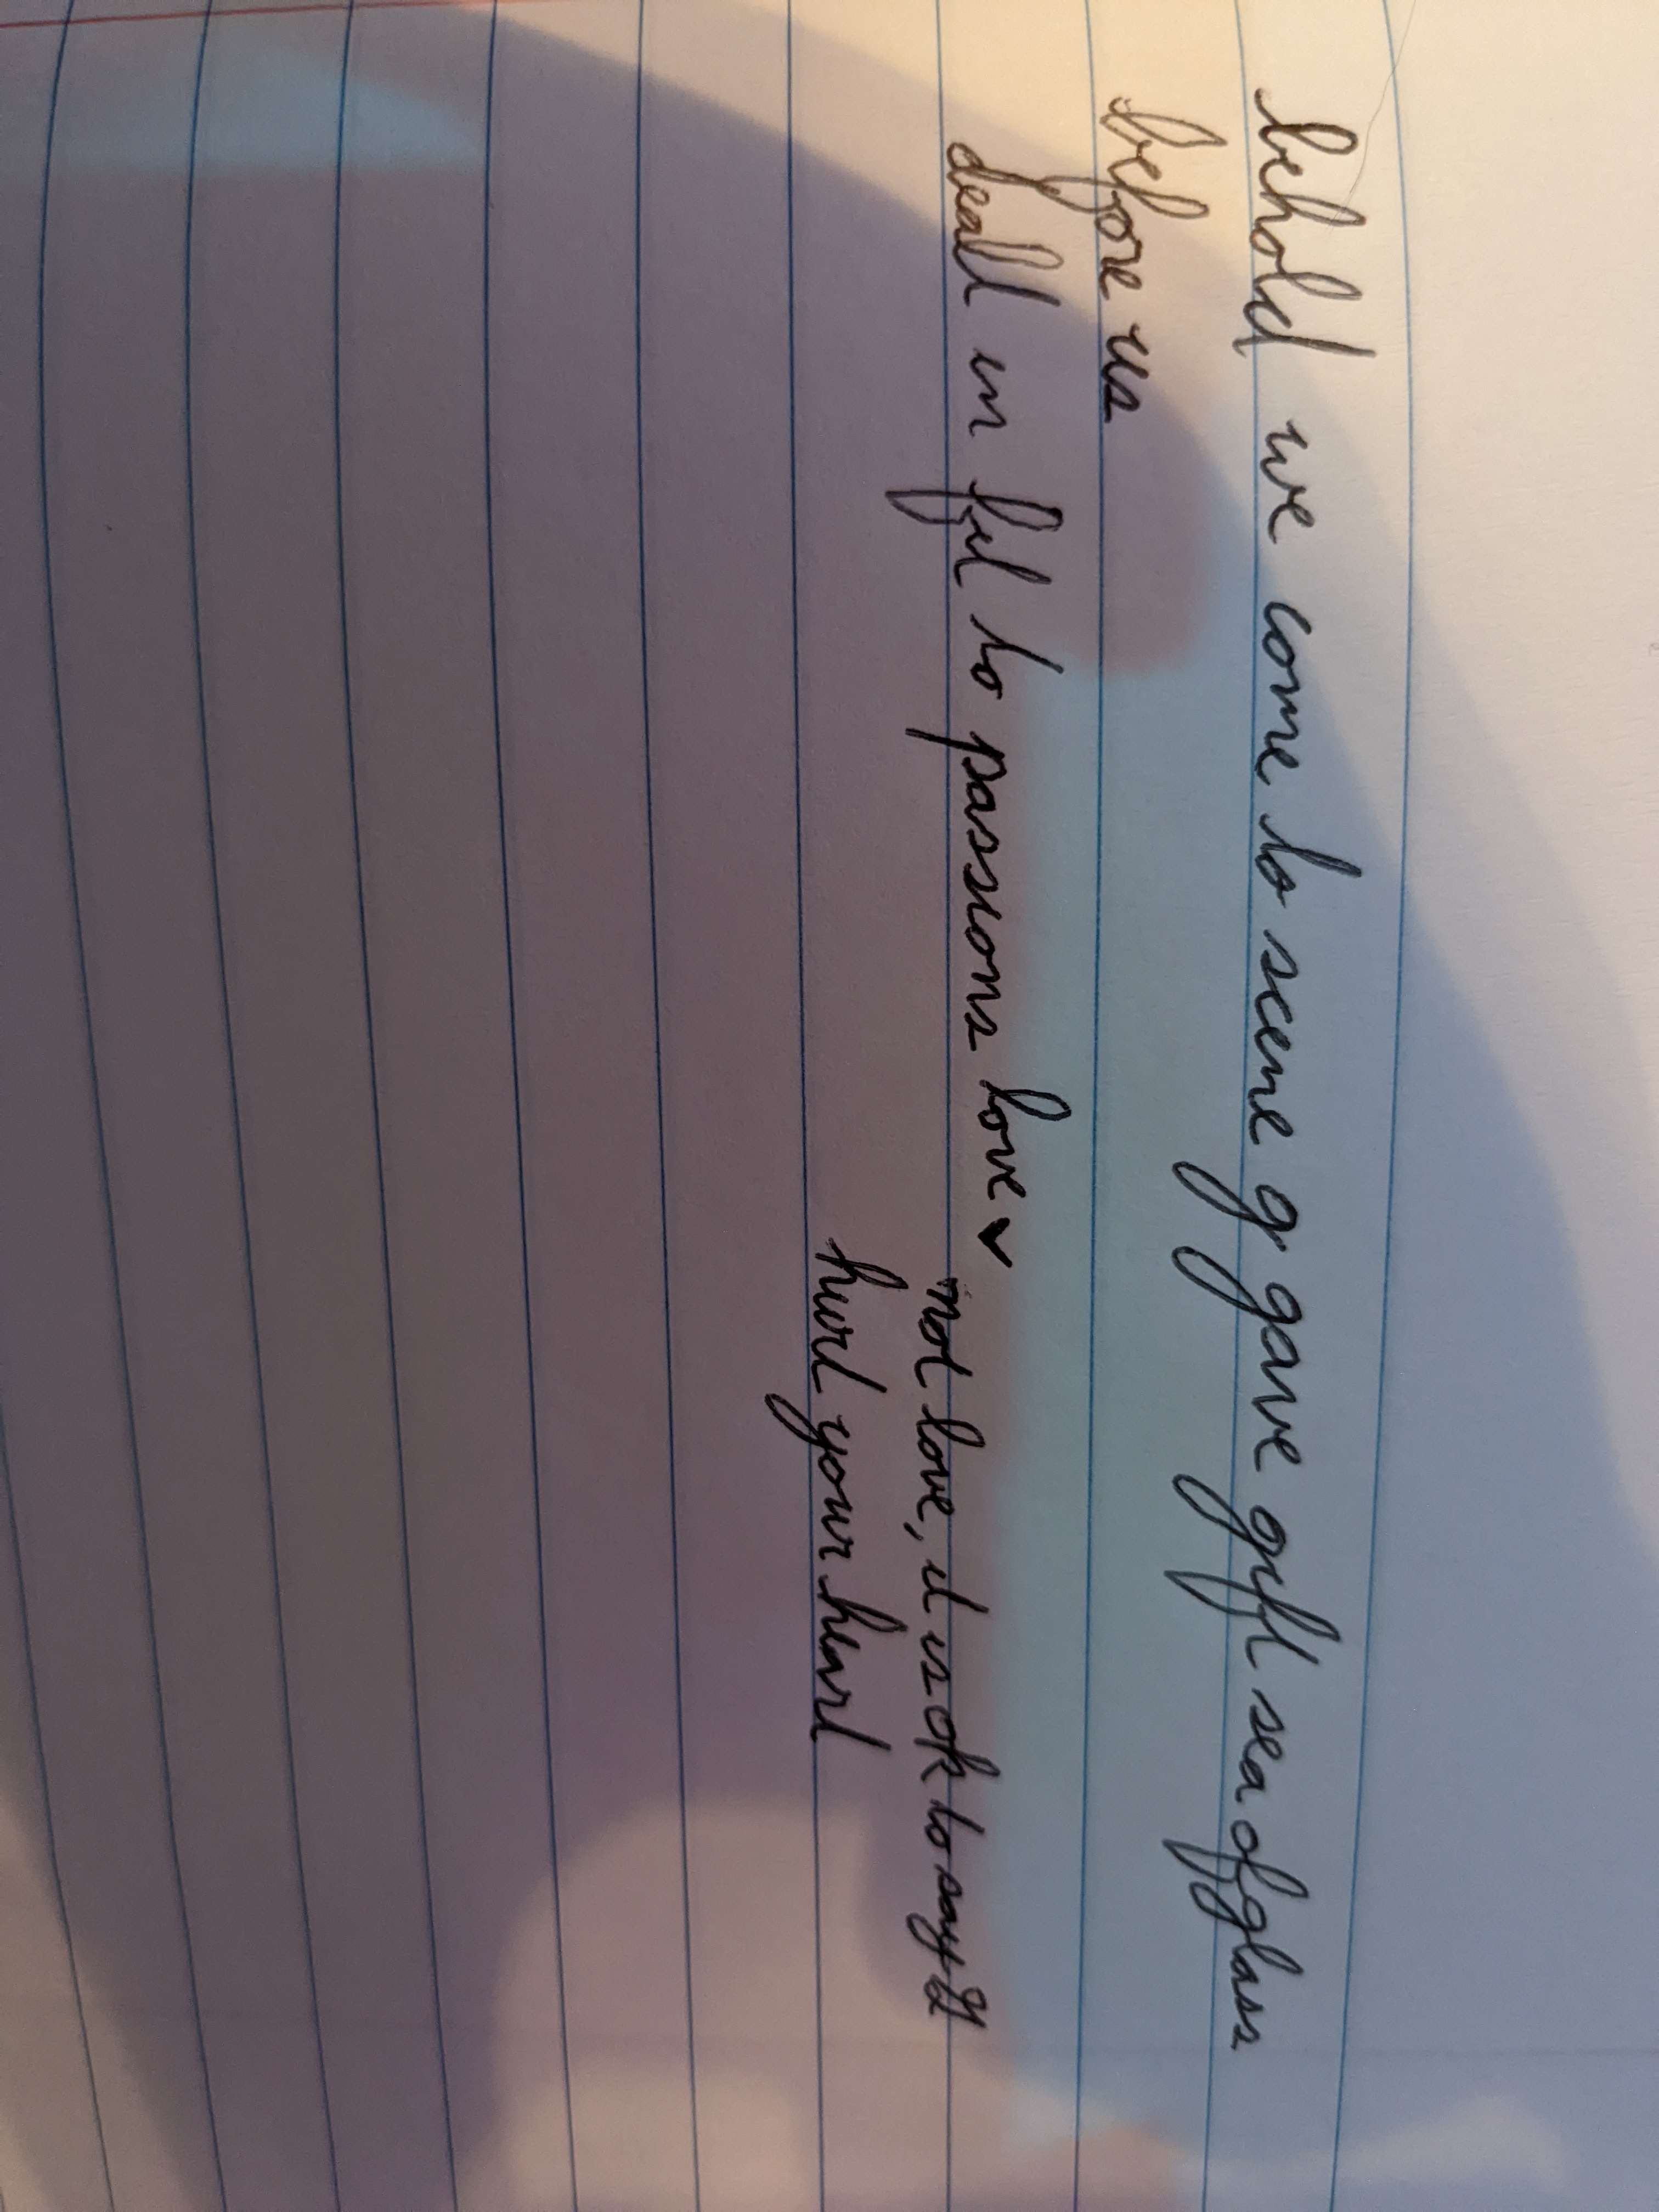 behold we come to scene g gave gift sea of glass
before us
deall in fel to passions love
not love, it is ok to say
hurt your heart